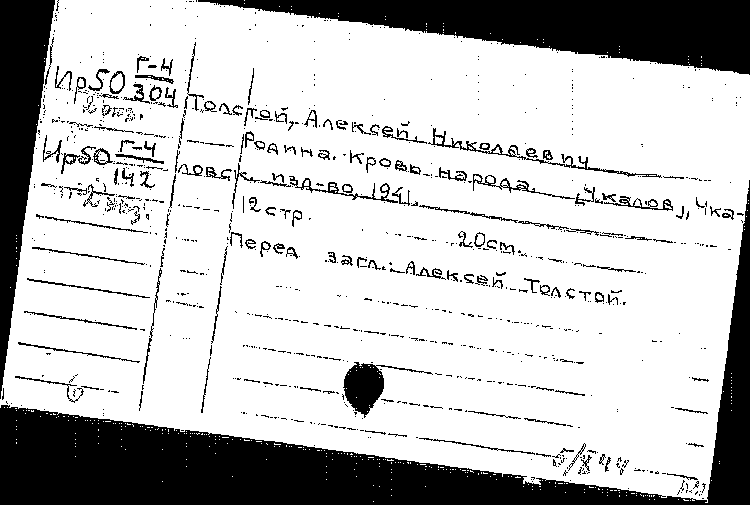 Ир50 Г-4/304
2 экз.
Ир50 Г-4/142
2 экз.
Толстой, Алексей Николаевич
Родина. Кровь народа. [Чкалов], Чка-
ловск. изд-во, 1941.
12 стр. 20 см.
Перед загл.: Алексей Толстой.
6
5/X 44